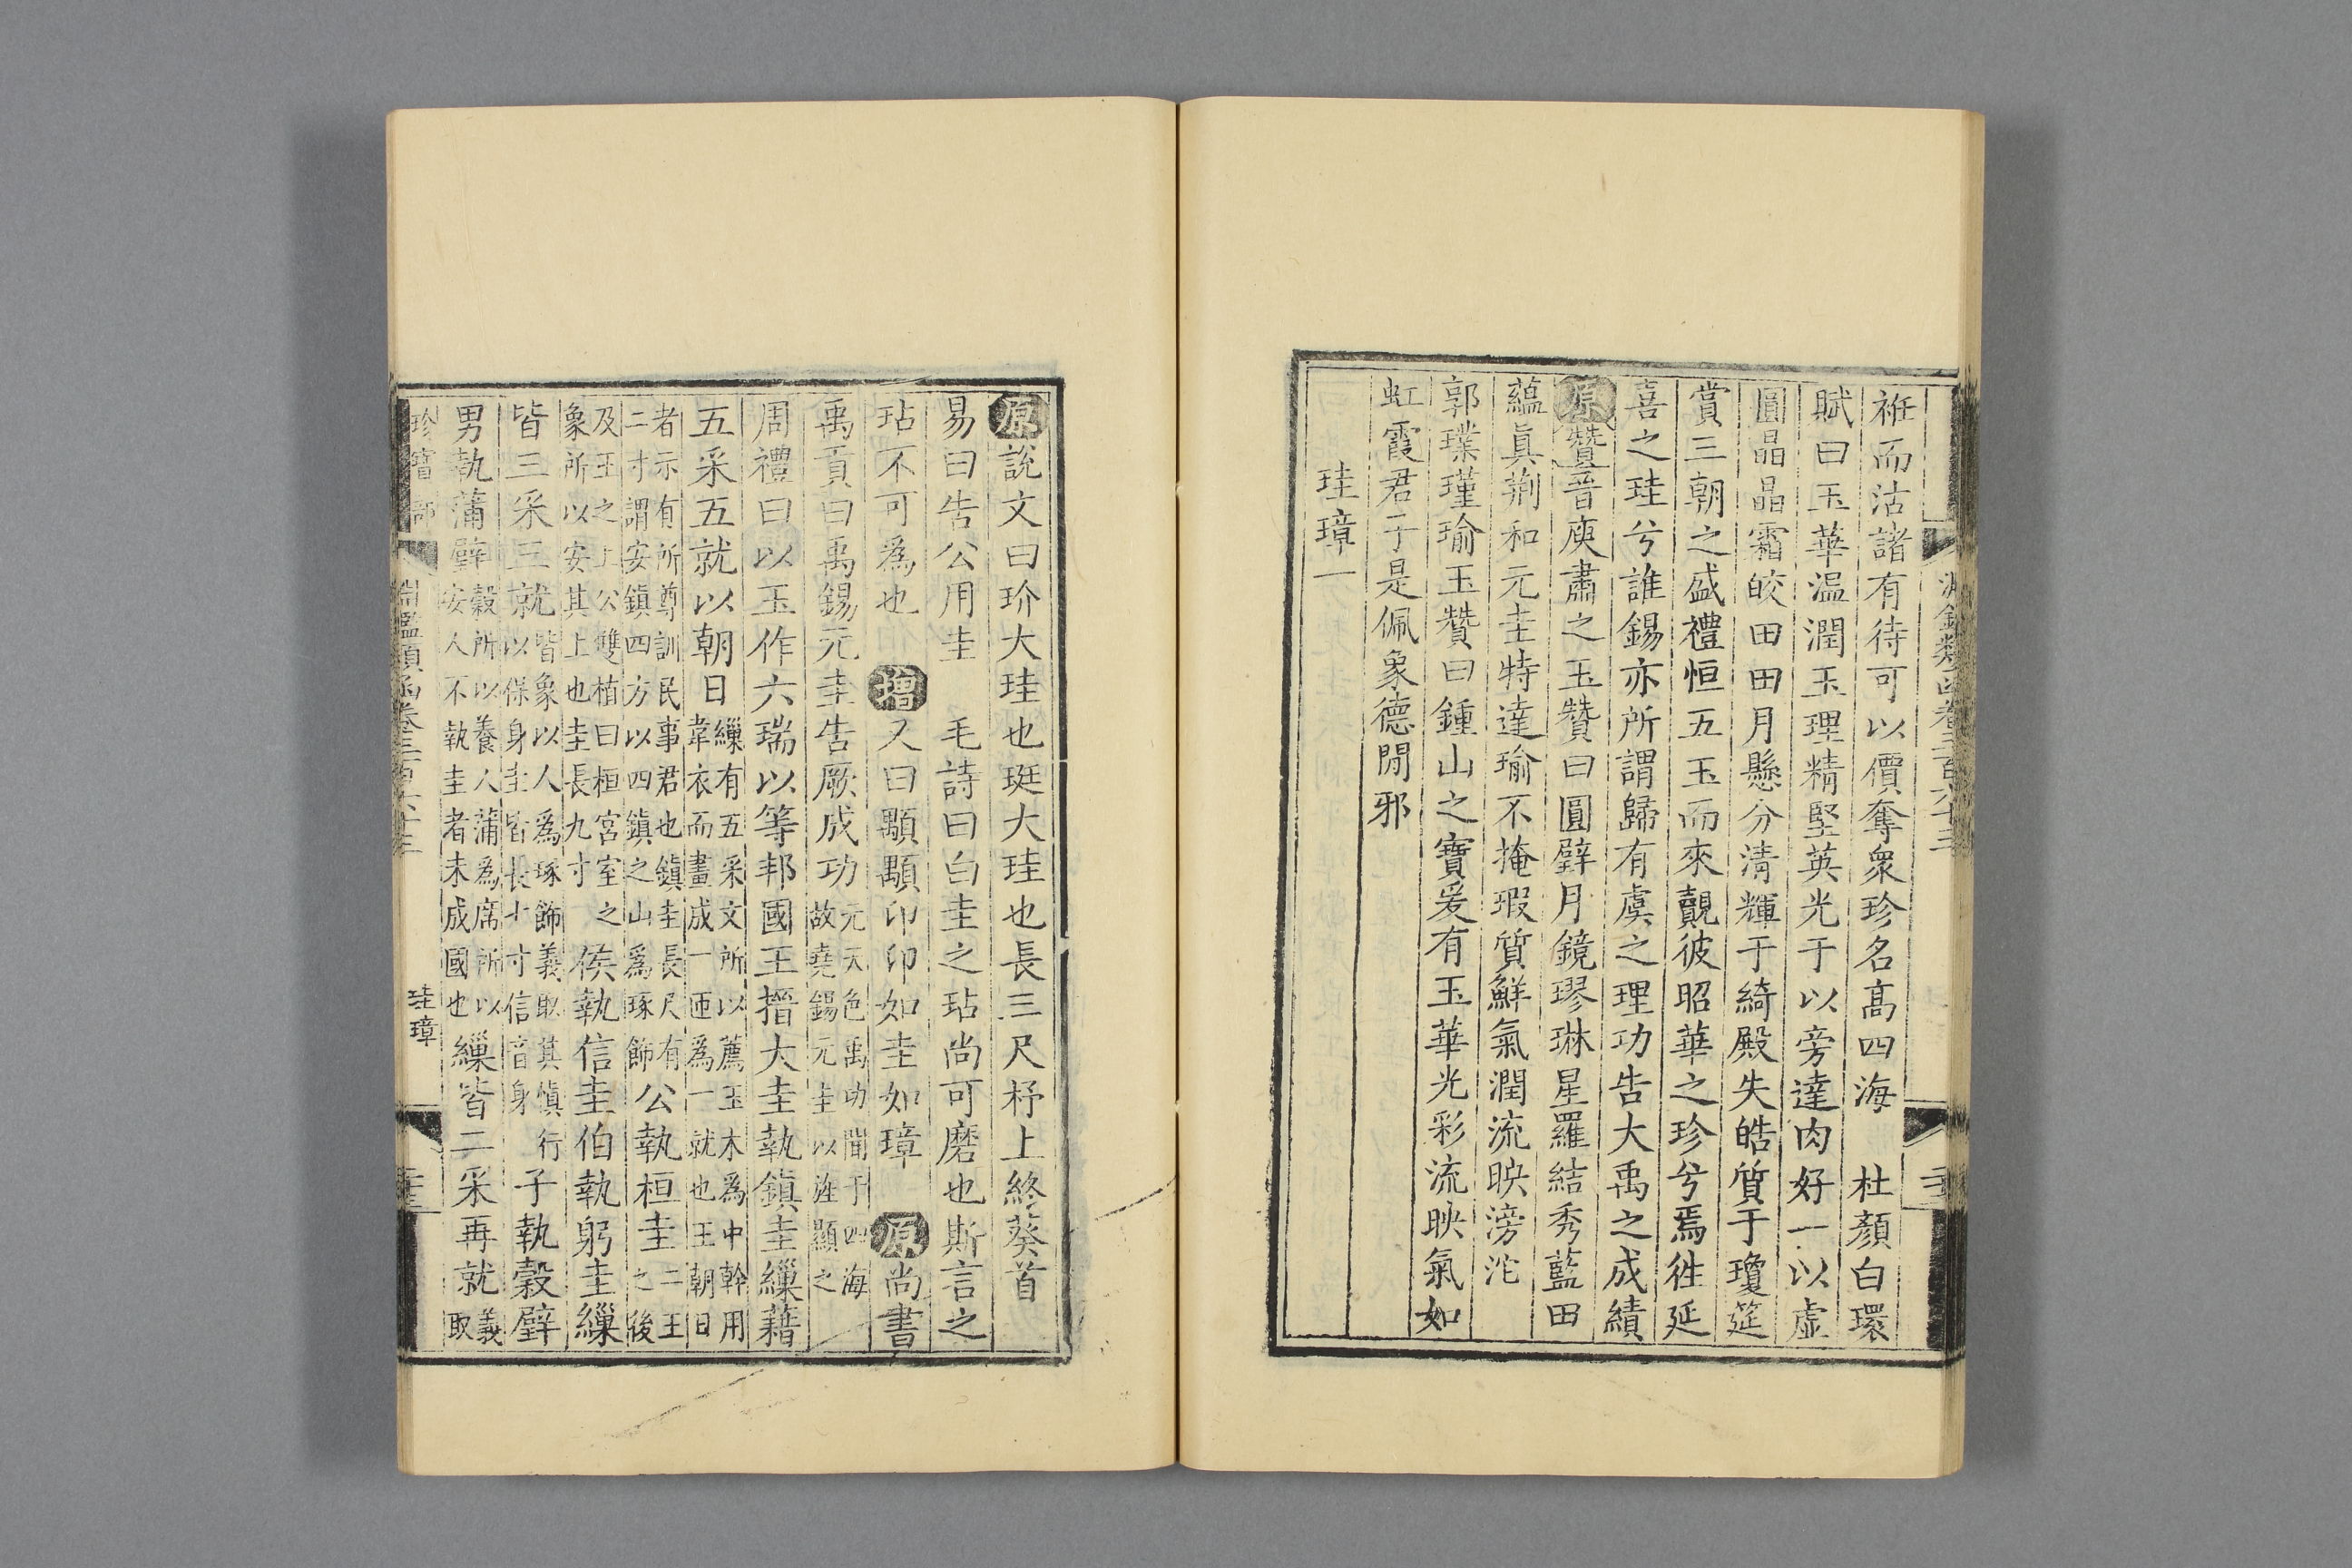 袵而沽諸有待可以價奪衆珍名高四海　杜顏白環
賦曰玉華温潤玉理精堅英光于以旁達肉好一以虛
圓晶晶霜皎田田月懸分清輝于綺殿失皓質于瓊筵
賞三朝之盛禮恒五玉而來覿彼昭華之珍兮焉徃延
喜之珪兮誰錫亦所謂歸有虞之理功告大禹之成績
原贊晉庾肅之玉贊曰圓璧月鏡璆琳星羅結秀藍田
蘊眞荆和元圭特達瑜不掩瑕質鮮氣潤流映滂沱
郭璞瑾瑜玉贊曰鍾山之寶爰有玉華光彩流映氣如
虹霞君子是佩象德閒邪
珪璋一
原說文曰玠大珪也珽大珪也長三尺杼上終葵首
易曰告公用圭　毛詩曰白圭之玷尚可磨也斯言之
玷不可爲也　增又曰顒顒卬卬如圭如璋　原尚書
禹貢曰禹錫元圭告厥成功元天色禹功聞于四海
故堯錫元圭以旌顯之
周禮曰以玉作六瑞以等邦國王搢大圭執鎭圭繅藉
五采五就以朝日繅有五采文所以薦玉木爲中幹用
韋衣而畫成一匝爲一就也王朝日
者示有所尊訓民事君也鎭圭長尺有
二寸謂安鎭四方以四鎭之山爲琢飾公執桓圭二王
之後
及王之上公雙植曰桓宮室之
象所以安其上也圭長九寸侯執信圭伯執躬圭繅
皆三采三就皆象以人爲琢飾義取其愼行
以保身圭皆長七寸信音身子執穀璧
男執蒲璧穀所以養人蒲爲席所以
安人不執圭者未成國也繅皆二采再就義
取
珍寶部
淵鑑類函卷三百六十三
珪璋